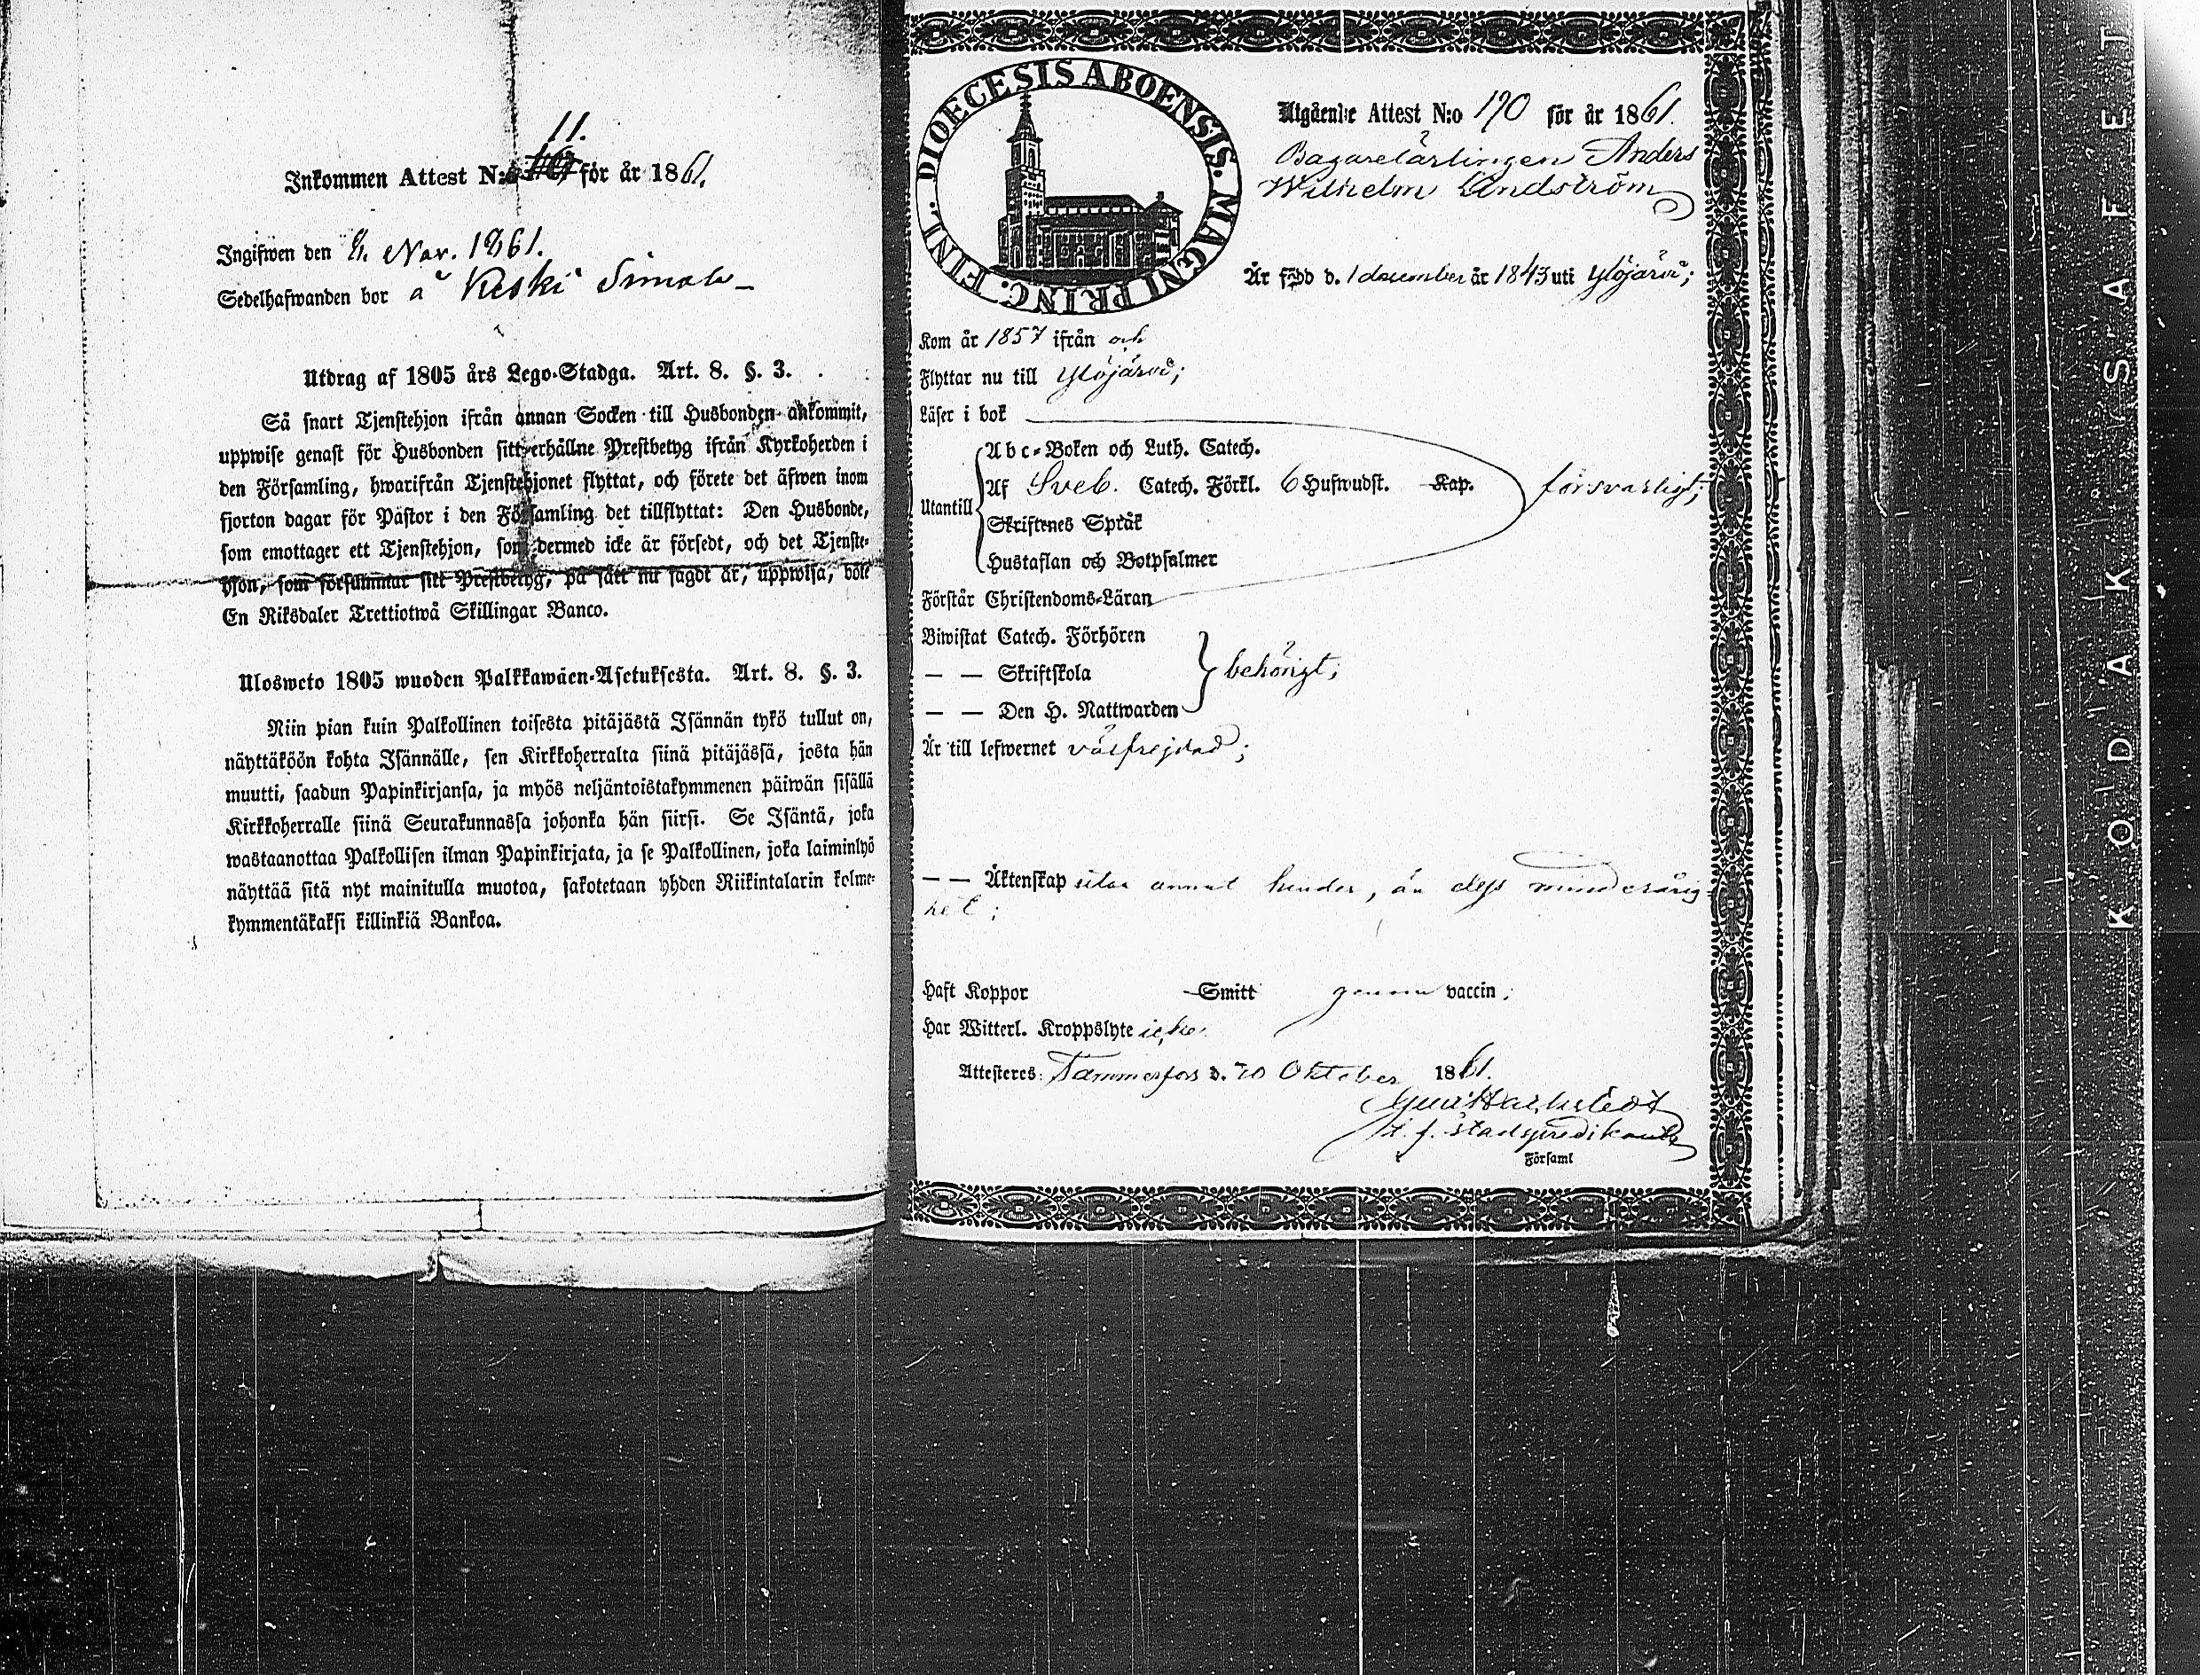 11.
Inkommen Attest N:o för år 1861.
Ingifwen den 8. Nov. 1861.
Sedelhafwanden bor å Keski Simola
Utdrag af 1805 års Lego-Stadga. Art. 8. §. 3.
Så snart Tjenstehjon ifrån annan Socken till Husbonden ankommit,
uppwise genast för Husbonden sitt erhållne Prestbetyg ifrån Kyrkoherden i
den Församling, hwarifrån Tjenstehjonet flyttat, och förete det äfwen inom
fjorton dagar för Pastor i den Församling det tillflyttat: Den Husbonde,
som emottager ett Tjenstehjon, som dermed icke är försedt, och det Tjenste-
hjon, som försummar sitt Prestbetyg, på sätt nu sagdt är, uppwisa, böte
En Riksdaler Trettiotwå Skillingar Banco.
Ulosweto 1805 wuoden Palkkawäen-Asetuksesta. Art. 8. §. 3.
Niin pian kuin Palkollinen toisesta pitäjästä Isännän tykö tullut on,
näyttäköön kohta Isännälle, sen Kirkkoherralta siinä pitäjässä, josta hän
muutti, saadun Papinkirjansa, ja myös neljäntoistakymmenen päiwän sisällä
Kirkkoherralle siinä Seurakunnassa johonka hän siirsi. Se Isäntä, joka
wastaanottaa Palkollisen ilman Papinkirjata, ja se Palkollinen, joka laiminlyö
näyttää sitä nyt mainitulla muotoa, sakotetaan yhden Riikintalarin kolme-
kymmentäkaksi killinkiä Bankoa.
DIOECESIS ABOENSIS. MAGNI PRINC. FINL.
Utgående Attest N:o 190 för år 1861.
Bagarelärlingen Anders
Wilhelm Lindström
Är född d. 1 december år 1843 uti Ylöjärvi;
Kom år 1857 ifrån och
Flyttar nu till Ylöjärvi;
Läser i bok
Abc-Boken och Luth. Catech.
Utantill
Af Sveb. Catech. Förkl. 6 Hufwudst. Kap. försvarligt;
Skriftenes Språk
Hustaflan och Botpsalmer
Förstår Christendoms-Läran
Biwistat Catech. Förhören
— — Skriftskola behörigt;
— — Den H. Nattwarden
Är till lefwernet välfrejdad;
— — Äktenskap utan annat hinder, än dess minderårig-
het;
Haft Koppor Smitt genom vaccin;
Har Witterl. Kroppslyte icke
Attesteres: Tammerfors d. 20 Oktober 1861.
t. f. stadspredikant
Församl
KODAK SAFET